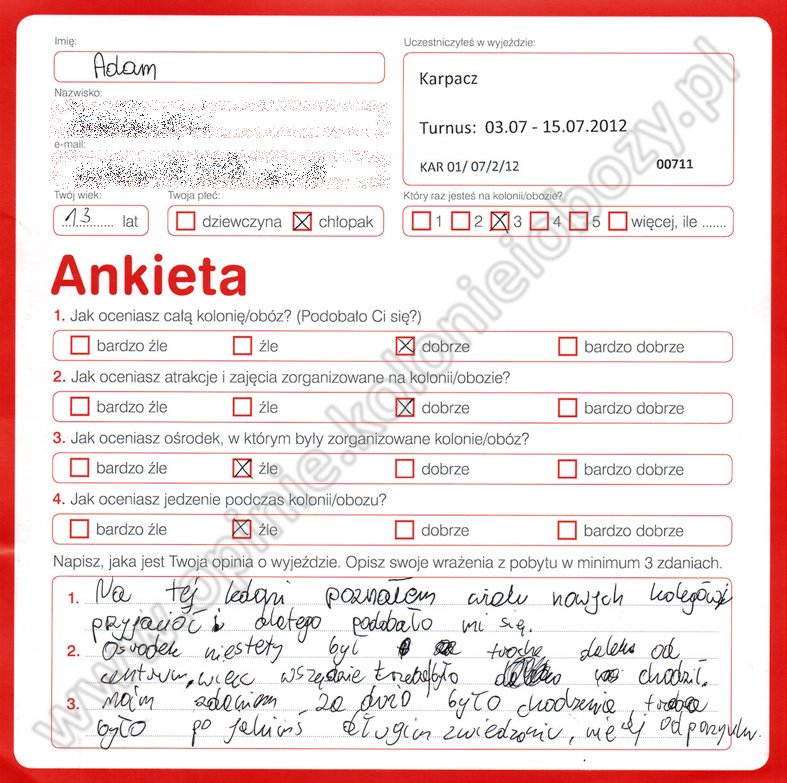 Imię:
Adam
Uczestniczyłeś w wyjeździe:
Karpacz
Turnus: 03.07 - 15.07.2012
KAR 01/ 07/2/12 00711
Nazwisko:
e-mail:
Twój wiek:
13 lat
Twoja płeć:
dziewczyna chłopak
Który raz jesteś na kolonii/obozie?
1 2 3 4 5 więcej, ile .......
Ankieta
1. Jak oceniasz całą kolonię/obóz? (Podobało Ci się?)
bardzo źle źle dobrze bardzo dobrze
2. Jak oceniasz atrakcje i zajęcia zorganizowane na kolonii/obozie?
bardzo źle źle dobrze bardzo dobrze
3. Jak oceniasz ośrodek, w którym były zorganizowane kolonie/obóz?
bardzo źle źle dobrze bardzo dobrze
4. Jak oceniasz jedzenie podczas kolonii/obozu?
bardzo źle źle dobrze bardzo dobrze
Napisz, jaka jest Twoja opinia o wyjeździe. Opisz swoje wrażenia z pobytu w minimum 3 zdaniach.
1. Na tej koloni poznałem wielu nowych kolegów i
przyjaciół i dlatego podobało mi się.
2. Ośrodek niestety był trochę daleko od
centrum, więc wszędzie trzeba było chodzić.
3. Moim zdaniem za dużo było chodzenia, trzeba
było po jakimś długim zwiedzaniu, więcej odpoczynku.
www.opinie.kolonieiobozy.pl